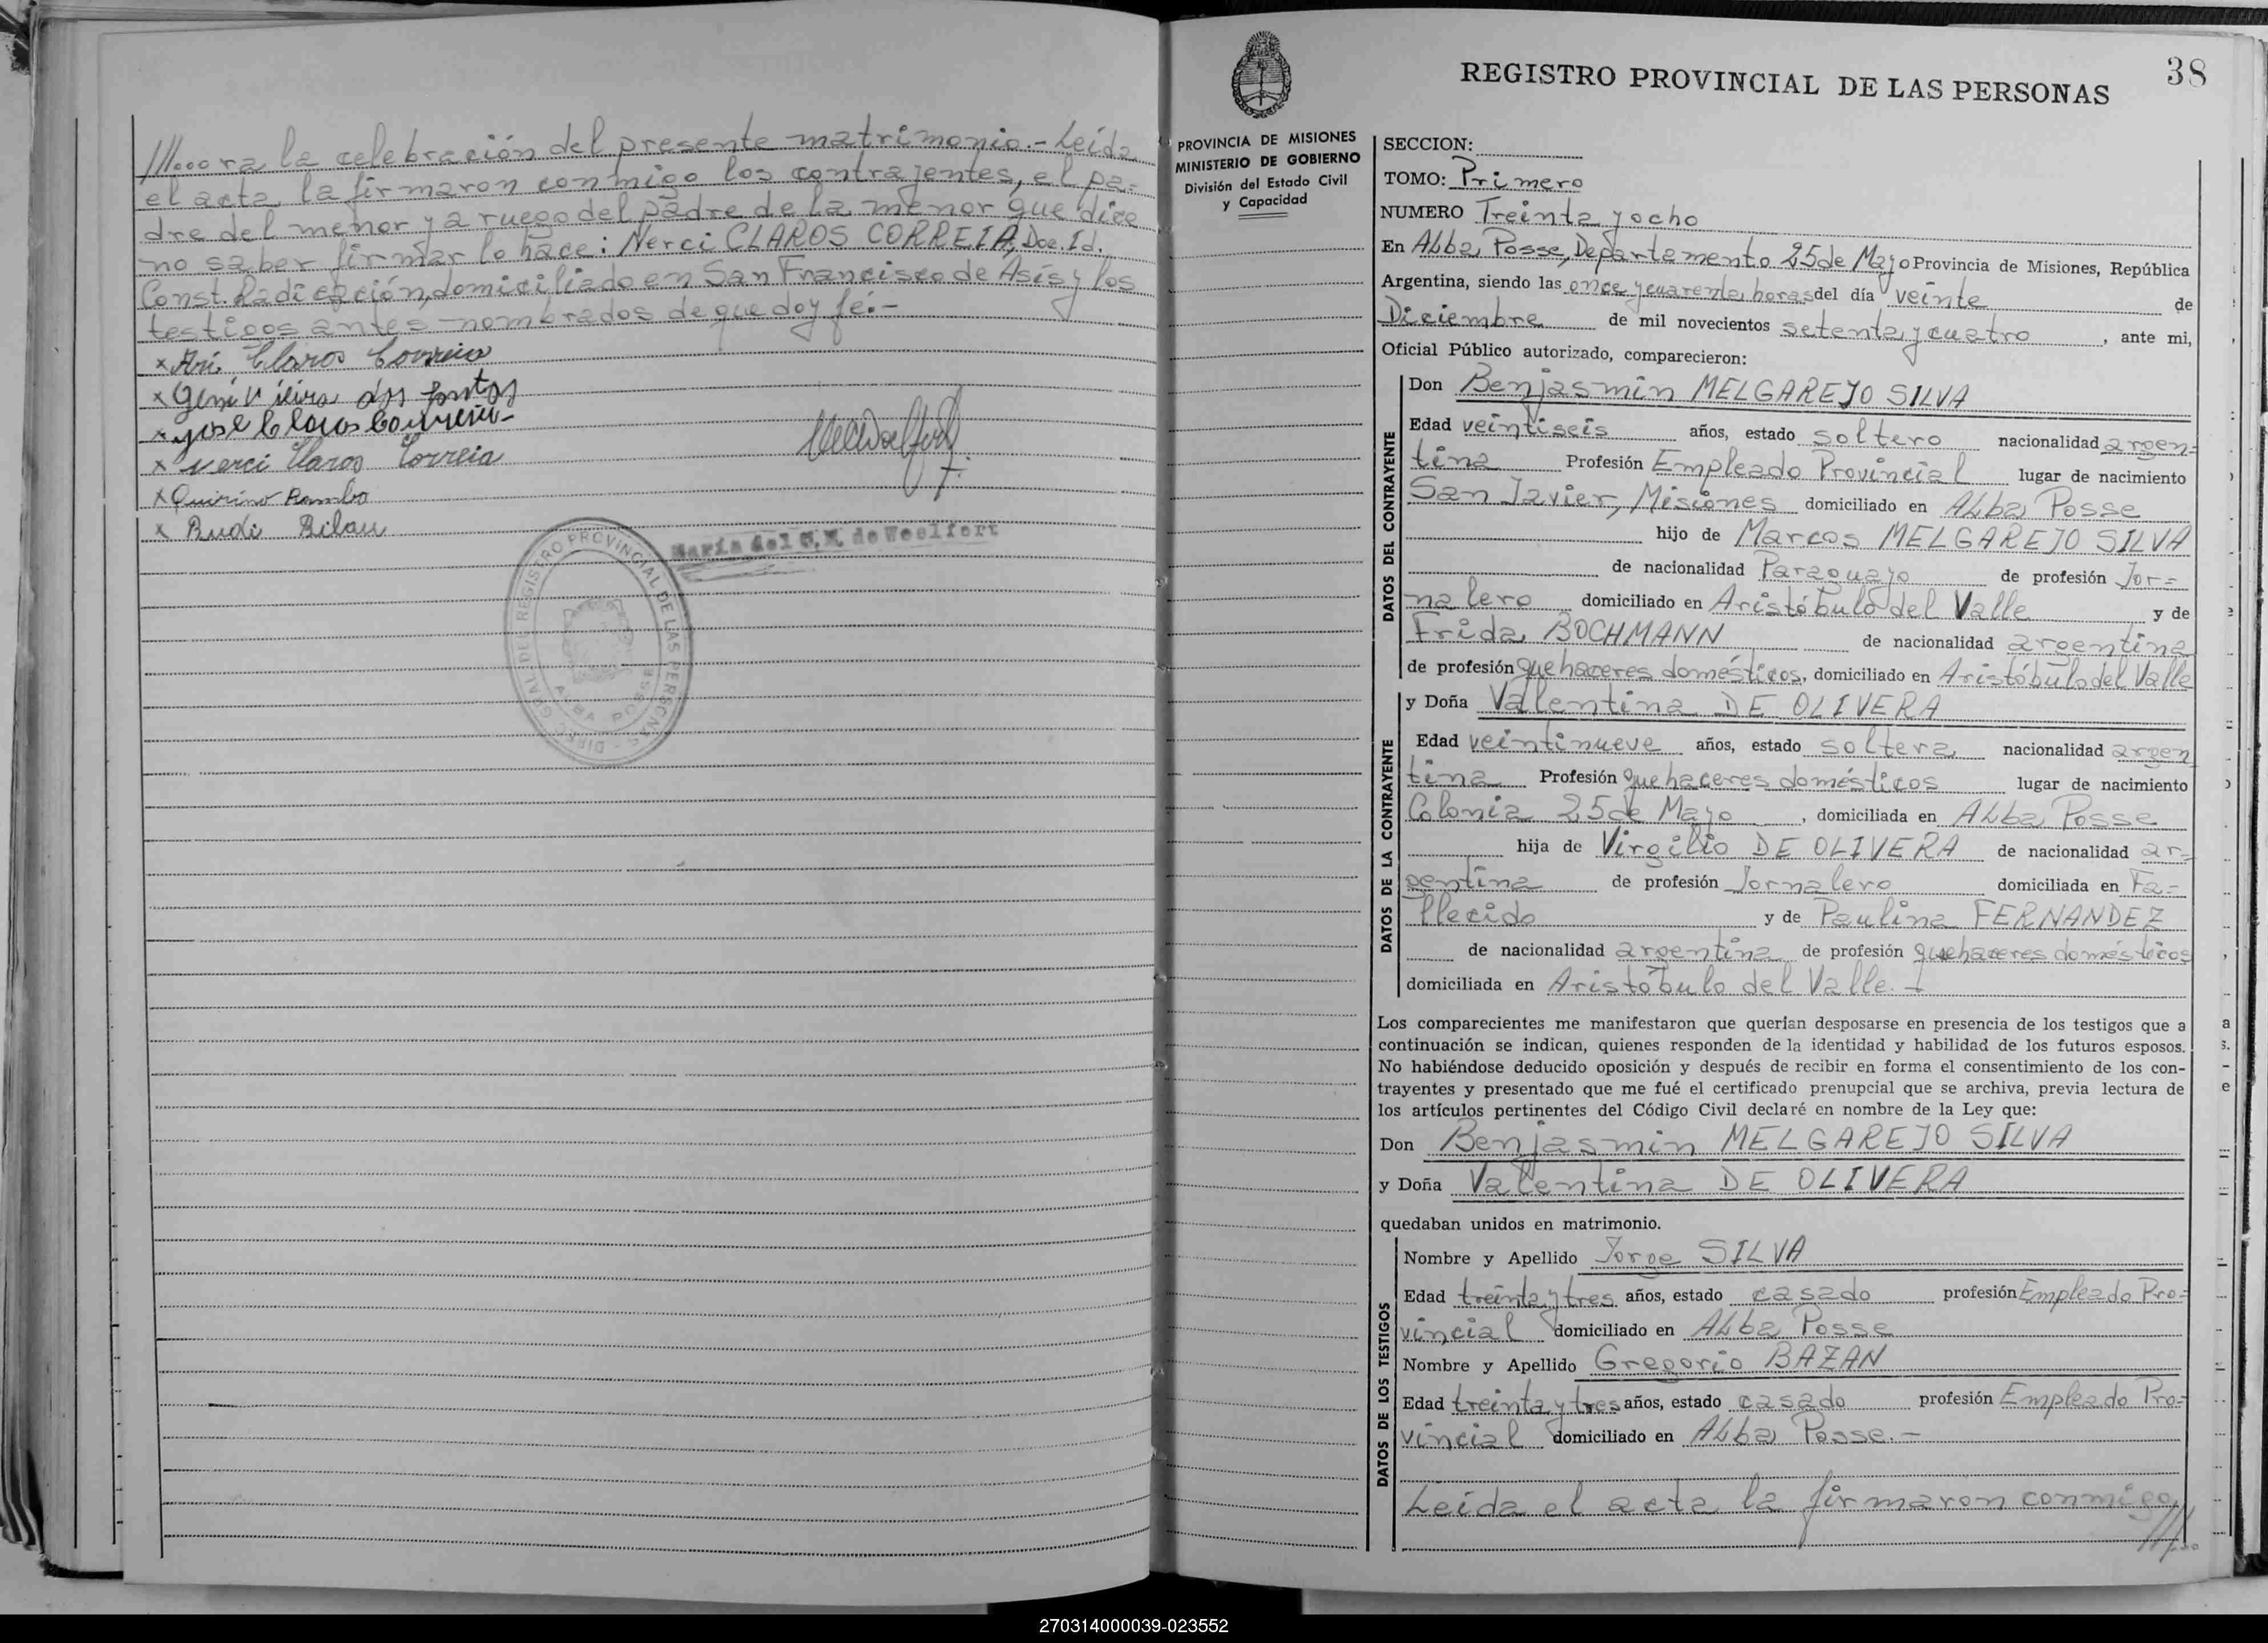 ///...ra la celebración del presente matrimonio.- Leída
el acta la firmaron conmigo los contrayentes, el pa-
dre del menor y a ruego del padre de la menor que dice
no saber firmar lo hace: Nerci CLAROS CORREIA, Doc. Id.
Const. Radicación, domiciliado en San Francisco de Asís y los
testigos antes nombrados de que doy fé.-
x Ari Claros Correia
x Geni Vieira dos Santos
x José Claros Correia
x Nerci Claros Correia
x Quirino Rambo
x Rudi Bilau
María del C. M. de Woelfert
DIREC. GRAL. DE REGISTRO PROVINCIAL DE LAS PERSONAS
ALBA POSSE
38
REGISTRO PROVINCIAL DE LAS PERSONAS
PROVINCIA DE MISIONES
MINISTERIO DE GOBIERNO
División del Estado Civil
y Capacidad
SECCION:
TOMO: Primero
NUMERO Treinta y ocho
En Alba Posse, Departamento 25 de Mayo Provincia de Misiones, República
Argentina, siendo las once y cuarenta horas del día veinte de
Diciembre de mil novecientos setenta y cuatro, ante mi,
Oficial Público autorizado, comparecieron:
DATOS DEL CONTRAYENTE
Don Benjasmin MELGAREJO SILVA
Edad veintiseis años, estado soltero nacionalidad argen-
tina Profesión Empleado Provincial lugar de nacimiento
San Javier, Misiones domiciliado en Alba Posse
hijo de Marcos MELGAREJO SILVA
de nacionalidad Paraguayo de profesión Jor-
nalero domiciliado en Aristóbulo del Valle y de
Frida BOCHMANN de nacionalidad argentina
de profesión quehaceres domésticos, domiciliado en Aristóbulo del Valle
DATOS DE LA CONTRAYENTE
y Doña Vallentina DE OLIVERA
Edad veintinueve años, estado soltera nacionalidad argen
tina Profesión quehaceres domésticos lugar de nacimiento
Colonia 25 de Mayo, domiciliada en Alba Posse
hija de Virgilio DE OLIVERA de nacionalidad ar-
gentina de profesión Jornalero domiciliada en Fa-
llecido y de Paulina FERNANDEZ
de nacionalidad argentina de profesión quehaceres domésticos
domiciliada en Aristóbulo del Valle.-
Los comparecientes me manifestaron que querían desposarse en presencia de los testigos que a
continuación se indican, quienes responden de la identidad y habilidad de los futuros esposos.
No habiéndose deducido oposición y después de recibir en forma el consentimiento de los con-
trayentes y presentado que me fué el certificado prenupcial que se archiva, previa lectura de
los artículos pertinentes del Código Civil declaré en nombre de la Ley que:
Don Benjasmin MELGAREJO SILVA
y Doña Valentina DE OLIVERA
quedaban unidos en matrimonio.
DATOS DE LOS TESTIGOS
Nombre y Apellido Jorge SILVA
Edad treinta y tres años, estado casado profesión Empleado Pro-
vincial domiciliado en Alba Posse
Nombre y Apellido Gregorio BAZAN
Edad treinta y tres años, estado casado profesión Empleado Pro-
vincial domiciliado en Alba Posse.-
Leída el acta la firmaron conmigo
///...
270314000039-023552